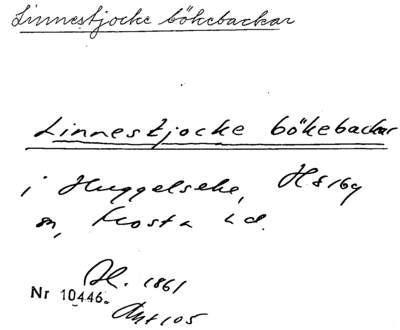 Linnestjocke bökebackar
Linnestjocke bökebackar
i Huggelseke, Hs 169
sn, Frosta hd.
H. 1861
Nr 10446.
Ant 105